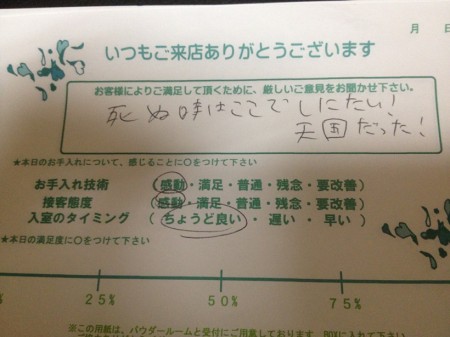 月 日
いつもご来店ありがとうございます
お客様によりご満足して頂くために、厳しいご意見をお聞かせ下さい。
死ぬ時はここでしにたい!
天国だった!
★本日のお手入れについて、感じることに○をつけて下さい
お手入れ技術 (感動・満足・普通・残念・要改善)
接客態度 (感動・満足・普通・残念・要改善)
入室のタイミング (ちょうど良い・遅い・早い)
★本日の満足度に○をつけて下さい
% 25% 50% 75%
※この用紙は、パウダールームと受付にご用意しております。BOXに入れて下さい。